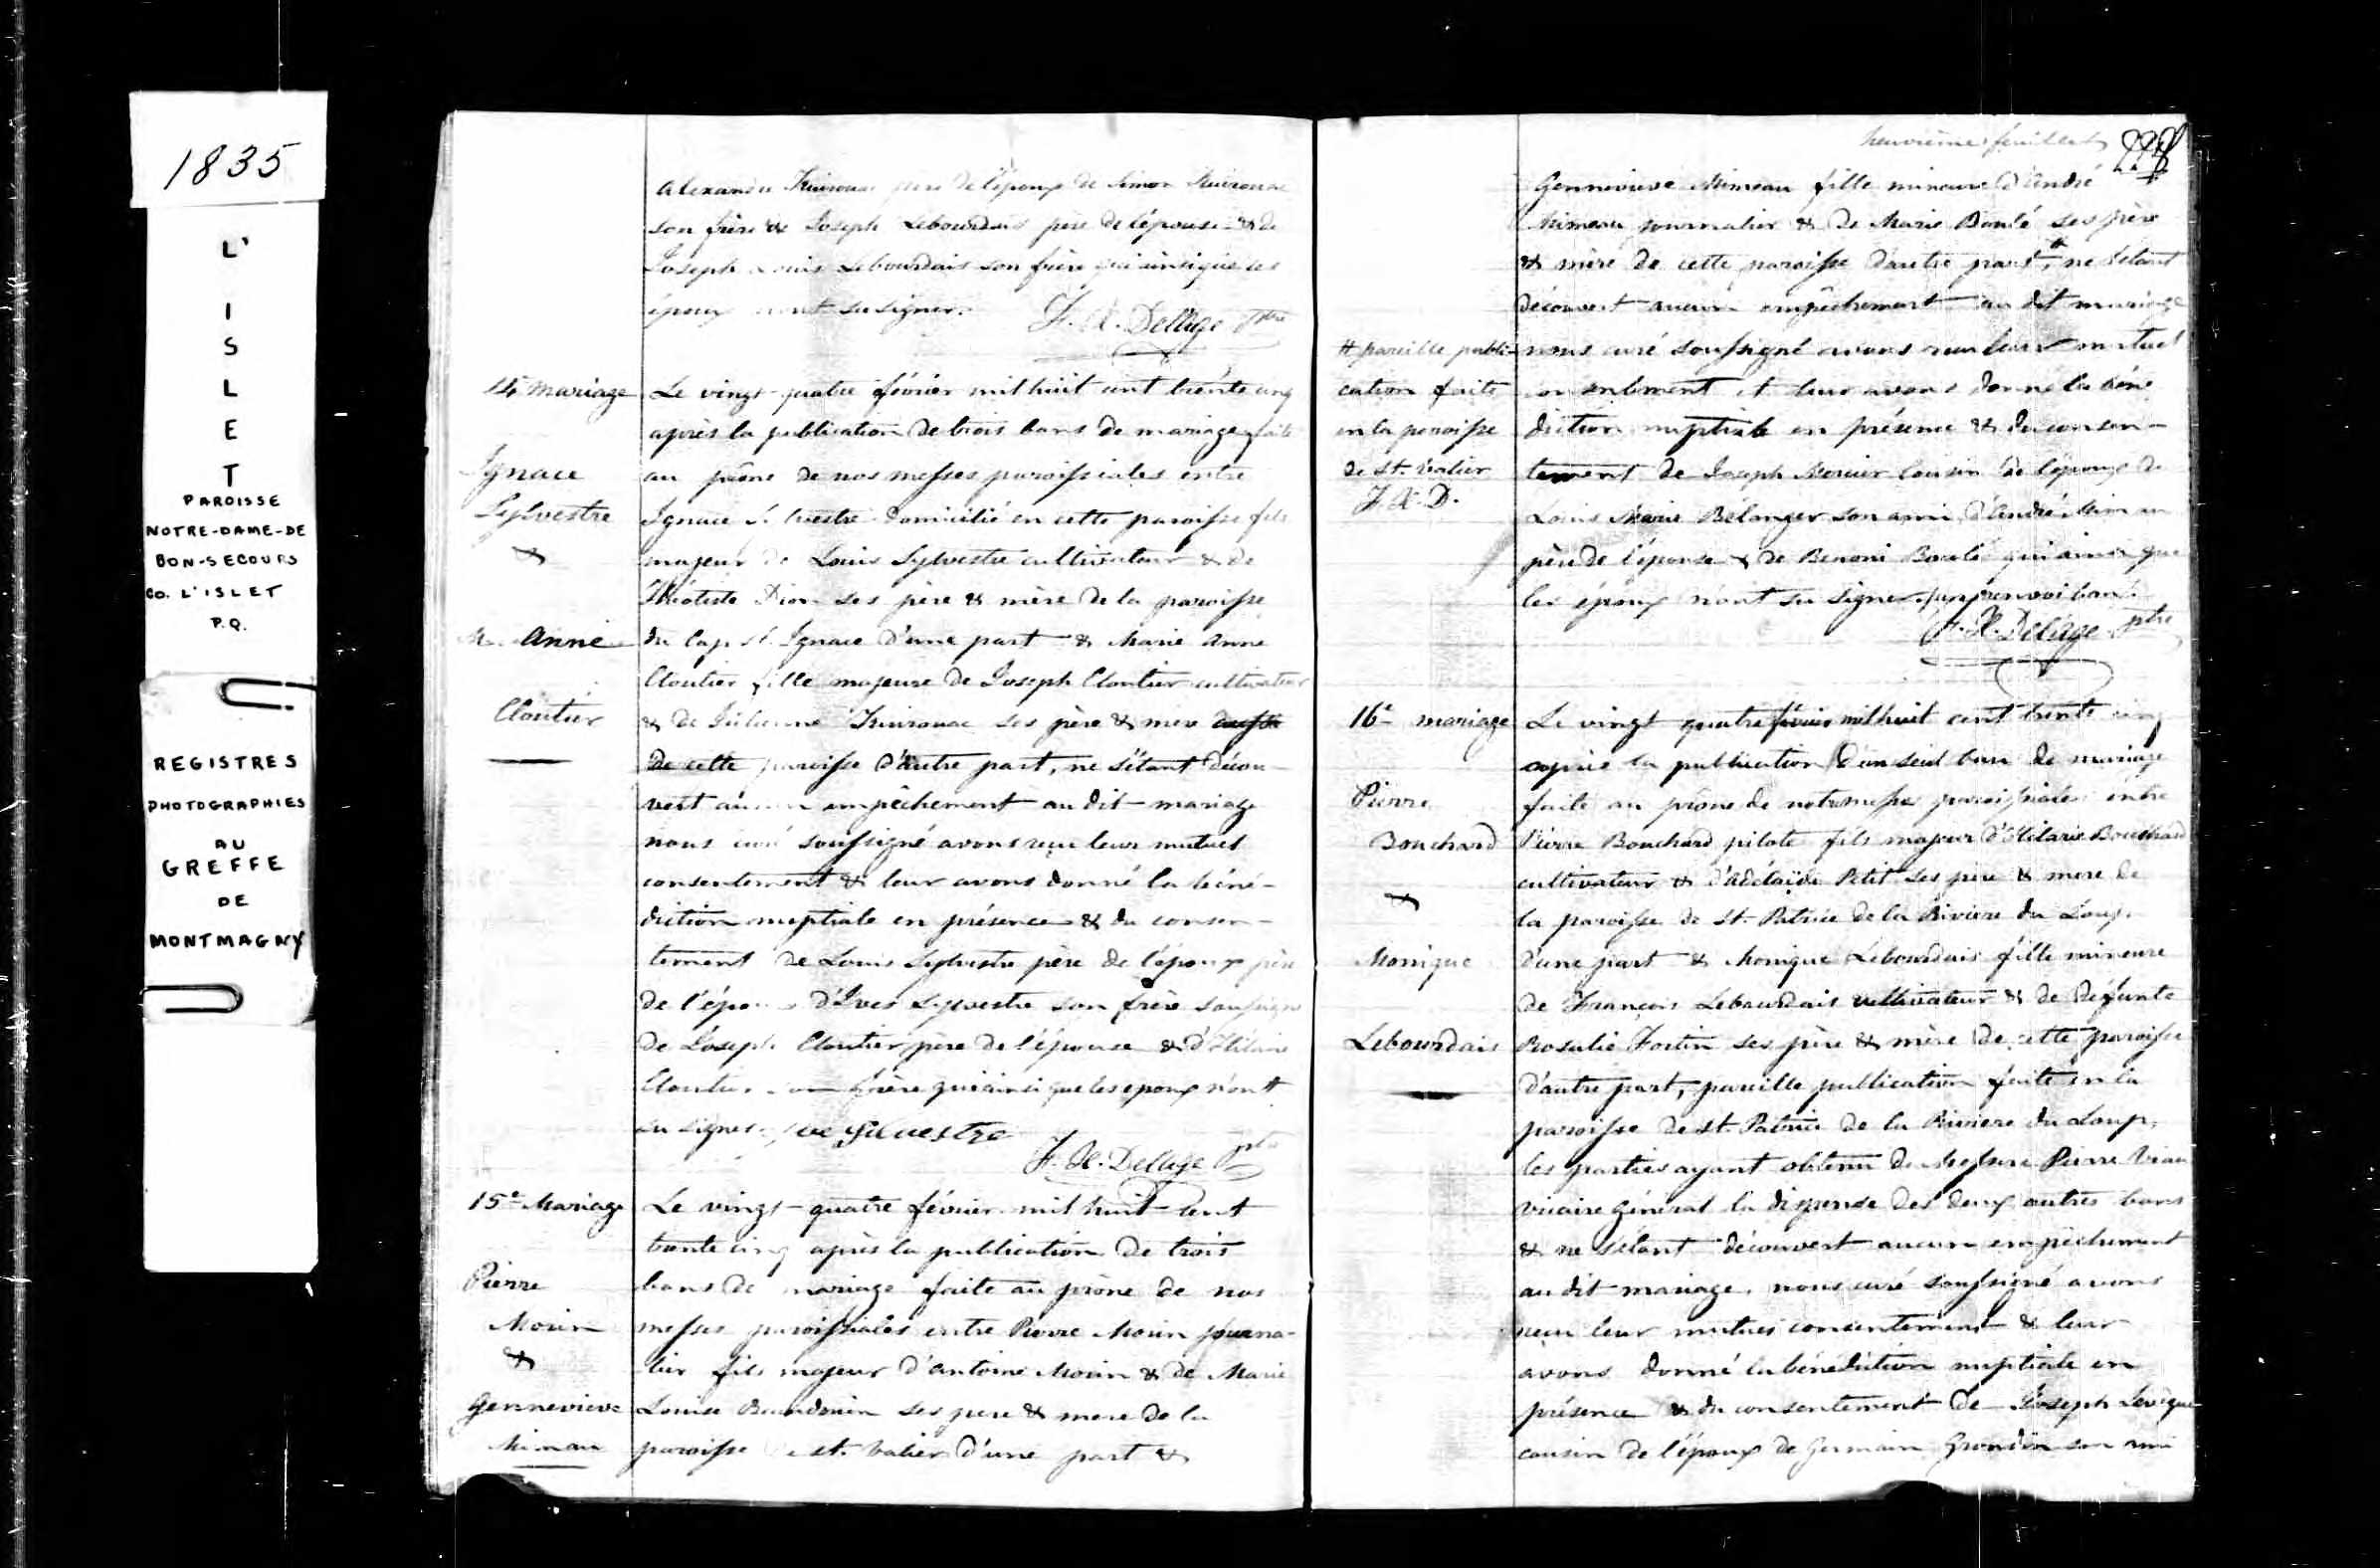 1835
L'
I
S
L
E
T
PAROISSE
NOTRE-DAME-DE
BON-SECOURS
CO. L'ISLET
P.Q.
REGISTRES
PHOTOGRAPHIES
AU
GREFFE
DE
MONTMAGNY
Alexandre père de l'époux de Simon
son frère de Joseph Lebourdais père de l'épouse & de
Joseph Louis Lebourdais son frère qui ainsi que les
époux n'ont su signer. F. X. Delâge ptre
14e Mariage
Ignace
Sylvestre
&
M. Anne
Cloutier
Le vingt-quatre février mil huit cent trente cinq
après la publication de trois bans de mariage faite
au prône de nos messes paroissiales entre
Ignace Sylvestre domicilié en cette paroisse fils
majeur de Louis Sylvestre cultivateur & de
Théotiste Dion ses père & mère de la paroisse
du Cap St. Ignace d'une part & Marie Anne
Cloutier fille majeure de Joseph Cloutier cultivateur
& de Julienne Kuirouac ses père & mere
de cette paroisse d'autre part, ne s'étant décou-
vert aucun empêchement au dit mariage
nous curé soussigné avons reçu leur mutuel
consentement & leur avons donné la béné-
diction nuptiale en présence & du consen-
tement de Louis Sylvestre père de l'époux père
de l'époux d'Ives Sylvestre son frère soussigné
de Joseph Cloutier père de l'épouse & d'Hilaire
Cloutier son frère qui ainsi que les epoux n'ont
su signer. Yve Silvestre
F. X. Delâge ptre
15e Mariage
Pierre
Morin
&
Gennevieve
Mimau
Le vingt-quatre février mil huit cent
trente cinq après la publication de trois
bans de mariage faite au prône de nos
messes paroissiales entre Pierre Morin journa-
lier fils majeur d'Antoine Morin & de Marie
Louise Beaudouin ses pere & mere de la
paroisse de St. Valier d'une part &
neuvième feuillet
Gennevieve Mimeau fille mineure d'André
Mimeau journalier & de Marie Boulé ses père
& mère de cette paroisse d'autre part, # ne s'étant
découvert aucun empêchement au dit mariage
nous curé soussigné avons reçu leur mutuel
consentement et leur avons donné la béné
diction nuptiale en présence & du consen-
tement de Joseph Mercier cousin de l'époux de
Louis Marie Bélanger son ami, d'André Mimau
père de l'épouse & de Benoni Boulé qui ainsi que
les époux n'ont su signer.
F. X. Delâge ptre
# pareille publi-
cation faite
en la paroisse
de St. Valier
F. X. D.
16e mariage
Pierre
Bouchard
&
Monique
Lebourdais
Le vingt quatre février mil huit cent trente cinq
après la publication d'un seul ban de mariage
faite au prône de notre messe paroissiale entre
Pierre Bouchard pilote fils majeur d'Hilarie Bouchard
cultivateur & d'Adélaïde Petit ses père & mere de
la paroisse de St. Patrice de la Riviere du Loup
d'une part & Monique Lebourdais fille mineure
de François Lebourdais cultivateur & de défunte
Rosalie Fortin ses père & mère de cette paroisse
d'autre part, pareille publication faite en la
paroisse de St. Patrice de la Riviere du Loup,
les parties ayant obtenu de Messire Pierre Viau
vicaire général la dispense des deux autres bans
& ne s'étant découvert aucun empêchement
au dit mariage, nous curé soussigné avons
reçu leur mutuel consentement & leur
avons donné la bénédiction nuptiale en
présence & du consentement de Joseph Levêque
cousin de l'époux de Germain Grondin son ami